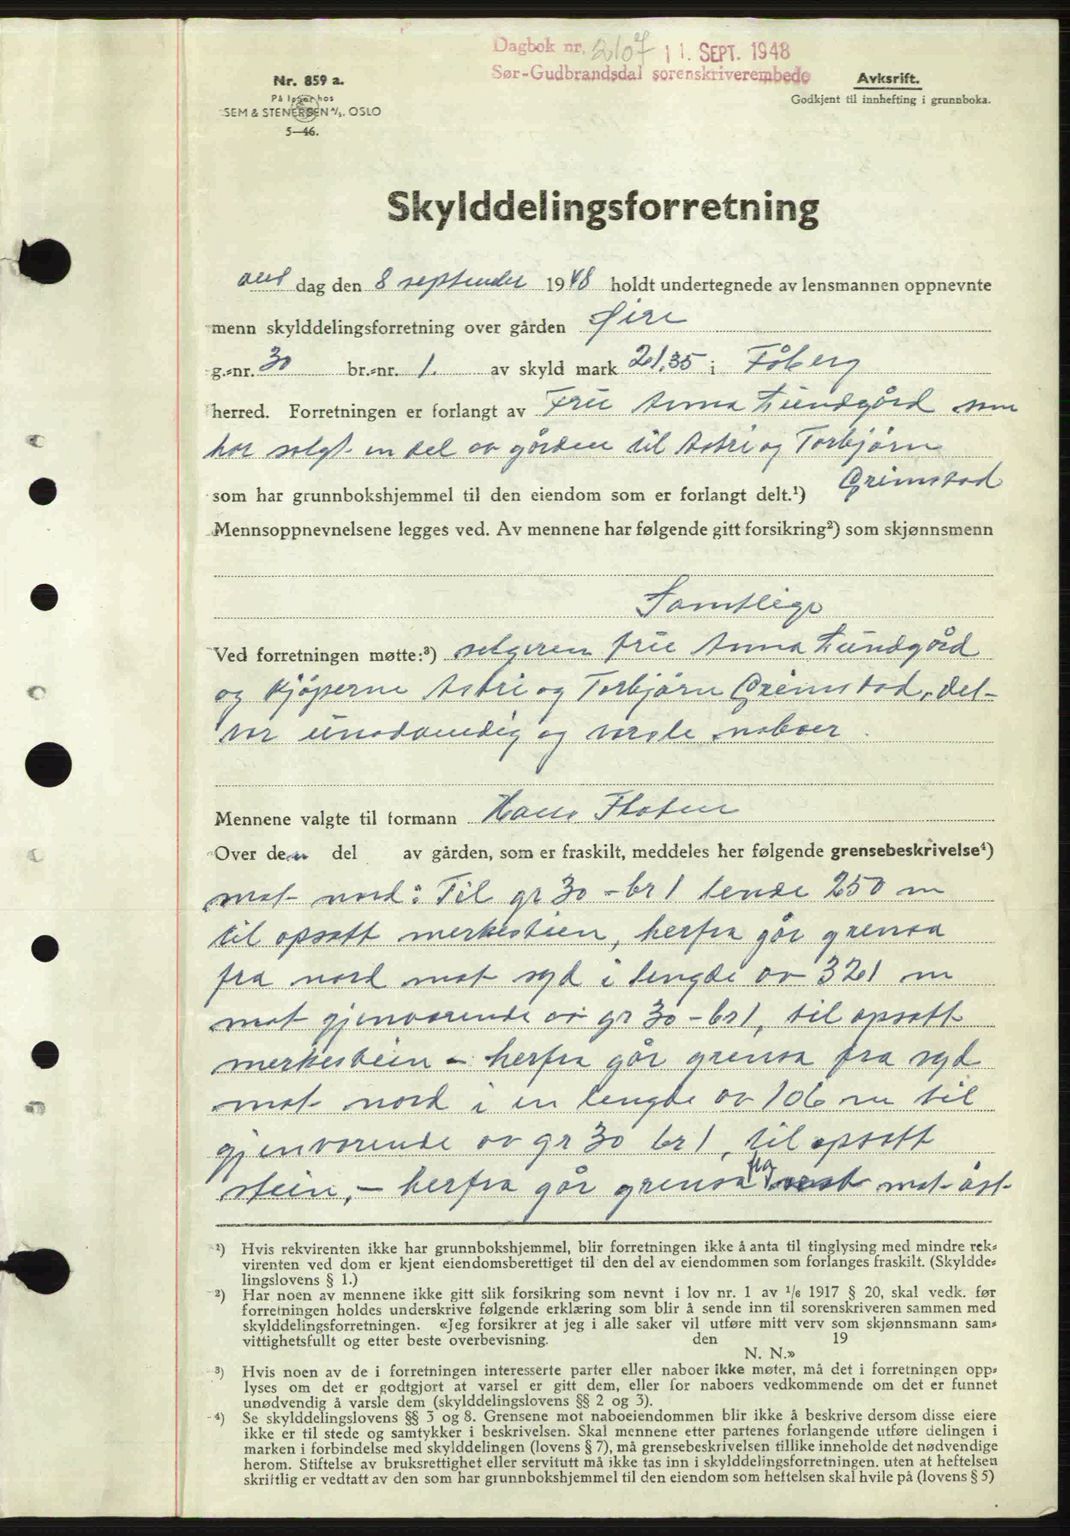 Dagbok nr. 2107 11. SEPT. 1948
Sør-Gudbrandsdal sorenskriverembede
Nr. 859 a.
På lager hos
SEM & STENERSEN A/S. OSLO
5—46.
Avskrift.
Godkjent til innhefting i grunnboka.
Skylddelingsforretning
dag den 8 september 1948 holdt undertegnede av lensmannen oppnevnte
menn skylddelingsforretning over gården Øire
g.-nr. 30 br.-nr. 1. av skyld mark 21,35 i Fåberg
herred. Forretningen er forlangt av Frü Anna Lundgård som
har solgt en del av gården til Astri og Torbjørn
Grimstad
som har grunnbokshjemmel til den eiendom som er forlangt delt.¹)
Mennsoppnevnelsene legges ved. Av mennene har følgende gitt forsikring²) som skjønnsmenn
Samtlige
Ved forretningen møtte:³) selgeren frü Anna Lundgård
og kjøperne Astri og Torbjørn Grimstad, del-
var unødvendig og varsle naboer.
Mennene valgte til formann Hans Floten
Over den del av gården, som er fraskilt, meddeles her følgende grensebeskrivelse⁴)
mot nord: Til gr 30 - br 1 lende 250 m
til opsatt merkestien, herfra går grensa
fra nord mot syd i lengde av 321 m
mot gjenværende av gr 30 - br 1, til opsatt
merkestein - herfra går grensa fra syd
mot nord i en lengde av 106 m til
gjenværende av gr 30 br 1, til opsatt
stein, - herfra går grensa fra mot øst
¹) Hvis rekvirenten ikke har grunnbokshjemmel, blir forretningen ikke å anta til tinglysing med mindre rek-
virenten ved dom er kjent eiendomsberettiget til den del av eiendommen som forlanges fraskilt. (Skyldde-
lingslovens § 1.)
²) Har noen av mennene ikke gitt slik forsikring som nevnt i lov nr. 1 av 1/6 1917 § 20, skal vedk. før
forretningen holdes underskrive følgende erklæring som blir å sende inn til sorenskriveren sammen med
skylddelingsforretningen. «Jeg forsikrer at jeg i alle saker vil utføre mitt verv som skjønnsmann sam-
vittighetsfullt og etter beste overbevisning. den 19
N. N.»
³) Hvis noen av de i forretningen interesserte parter eller naboer ikke møter, må det i forretningen opp-
lyses om det er godtgjort at varsel er gitt dem, eller for naboers vedkommende om det er funnet
unødvendig å varsle dem (skylddelingslovens §§ 2 og 3).
⁴) Se skylddelingslovens §§ 3 og 8. Grensene mot naboeiendommen blir ikke å beskrive dersom disse eiere
ikke er til stede og samtykker i beskrivelsen. Skal mennene etter partenes forlangende utføre delingen i
marken i forbindelse med skylddelingen (lovens § 7), må grensebeskrivelsen tillike inneholde det nødvendige
herom. Stiftelse av bruksrettighet eller servitutt må ikke tas inn i skylddelingsforretningen, uten at heftelsen
skriftlig er vedtatt av den som har grunnbokshjemmel til den eiendom som heftelsen skal hvile på (lovens § 5)